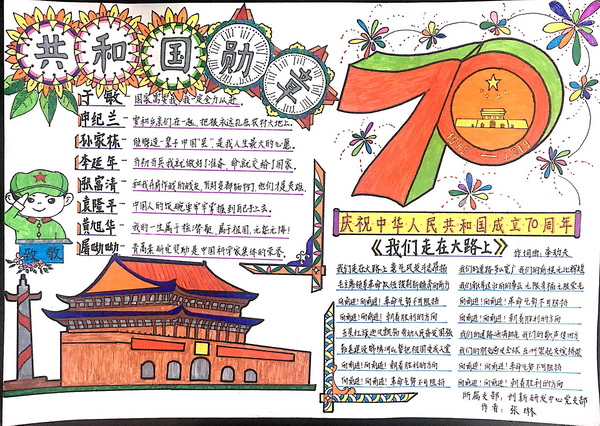 共和国勋章
于敏 国家需要我,我一定全力以赴
申纪兰 在一起,把根永远扎在农村大地上.
孙家栋 是我人生最大的心愿.
李延年 当初当兵我就做好准备 命就交给了国家
张富清 和我并肩作战的战友,有好多都牺牲了,他们才是英雄.
袁隆平 中国人的饭碗要牢牢掌握到自己手上
黄旭华 我的一生属于核潜艇 属于祖国,无怨无悔!
屠呦呦 青蒿素研究获奖是中国科学家集体的荣誉.
致敬
70
1949—2019
庆祝中华人民共和国成立70周年
《我们走在大路上》
作词曲:李劫夫
我们走在大路上 意气风发斗志昂扬
毛主席领导革命队伍 披荆斩棘奔向前方
向前进!向前进!革命气势不可阻挡
向前进!向前进!朝着胜利的方向
红旗迎风飘扬 六亿人民奋发图强
勤恳建设锦绣河山 誓把祖国变成天堂
向前进!向前进!革命气势不可阻挡
向前进!向前进!朝着胜利的方向
我们的道路多么宽广 我们的前程无比辉煌
我们献身这壮丽的事业 无限幸福无上荣光
向前进!向前进!革命气势不可阻挡
向前进!向前进!朝着胜利的方向
我们的道路洒满阳光 我们的歌声传四方
我们的朋友遍及全球 五洲架起友谊桥梁
向前进!向前进!革命气势不可阻挡
向前进!向前进!朝着胜利的方向
所属支部:创新研发中心党支部
作者:张琳